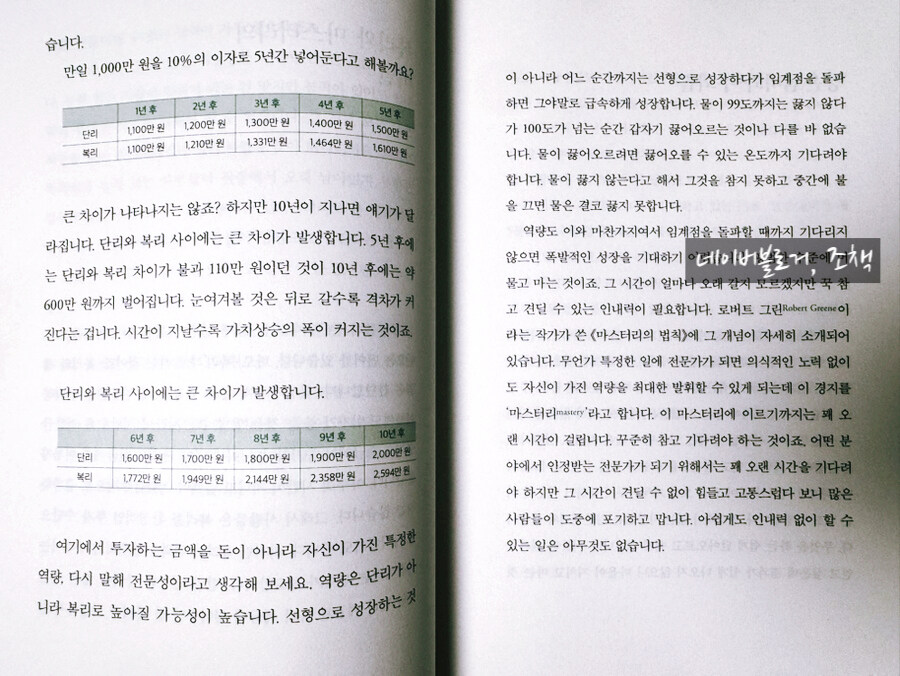 습니다.
만일 1,000만 원을 10%의 이자로 5년간 넣어둔다고 해볼까요?
1년 후 2년 후 3년 후 4년 후 5년 후
단리 1,100만 원 1,200만 원 1,300만 원 1,400만 원 1,500만 원
복리 1,100만 원 1,210만 원 1,331만 원 1,464만 원 1,610만 원
큰 차이가 나타나지는 않죠? 하지만 10년이 지나면 얘기가 달
라집니다. 단리와 복리 사이에는 큰 차이가 발생합니다. 5년 후에
는 단리와 복리 차이가 불과 110만 원이던 것이 10년 후에는 약
600만 원까지 벌어집니다. 눈여겨볼 것은 뒤로 갈수록 격차가 커
진다는 겁니다. 시간이 지날수록 가치상승의 폭이 커지는 것이죠.
단리와 복리 사이에는 큰 차이가 발생합니다.
6년 후 7년 후 8년 후 9년 후 10년 후
단리 1,600만 원 1,700만 원 1,800만 원 1,900만 원 2,000만 원
복리 1,772만 원 1,949만 원 2,144만 원 2,358만 원 2,594만 원
여기에서 투자하는 금액을 돈이 아니라 자신이 가진 특정한
역량, 다시 말해 전문성이라고 생각해 보세요. 역량은 단리가 아
니라 복리로 높아질 가능성이 높습니다. 선형으로 성장하는 것
이 아니라 어느 순간까지는 선형으로 성장하다가 임계점을 돌파
하면 그야말로 급속하게 성장합니다. 물이 99도까지는 끓지 않다
가 100도가 넘는 순간 갑자기 끓어오르는 것이나 다를 바 없습니
다. 물이 끓어오르려면 끓어오를 수 있는 온도까지 기다려야
합니다. 물이 끓지 않는다고 해서 그것을 참지 못하고 중간에 불
을 끄면 물은 결코 끓지 못합니다.
역량도 이와 마찬가지여서 임계점을 돌파할 때까지 기다리지
않으면 폭발적인 성장을 기대하기
네이버블로거, 조책
물고 마는 것이죠. 그 시간이 얼마나 오래 갈지 모르겠지만 꾹 참
고 견딜 수 있는 인내력이 필요합니다. 로버트 그린Robert Greene이
라는 작가가 쓴 《마스터리의 법칙》에 그 개념이 자세히 소개되어
있습니다. 무언가 특정한 일에 전문가가 되면 의식적인 노력 없이
도 자신이 가진 역량을 최대한 발휘할 수 있게 되는데 이 경지를
'마스터리mastery'라고 합니다. 이 마스터리에 이르기까지는 꽤 오
랜 시간이 걸립니다. 꾸준히 참고 기다려야 하는 것이죠. 어떤 분
야에서 인정받는 전문가가 되기 위해서는 꽤 오랜 시간을 기다려
야 하지만 그 시간이 견딜 수 없이 힘들고 고통스럽다 보니 많은
사람들이 도중에 포기하고 맙니다. 아쉽게도 인내력 없이 할 수
있는 일은 아무것도 없습니다.